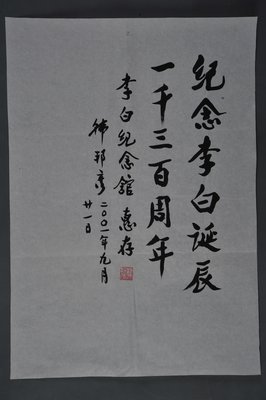 纪念李白诞辰
一千三百周年
李白纪念馆 惠存
二〇〇一年九月
廿一日